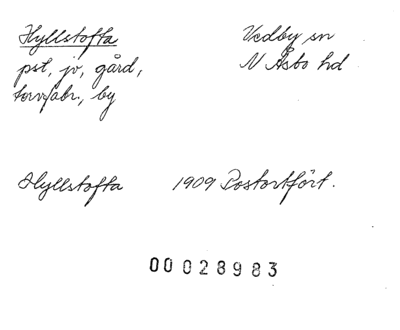 Hyllstofta Vedby sn
pst, jv, gård, N Åsbo hd
torvfabr., by
Hyllstofta 1909 Postortfört.
00028983